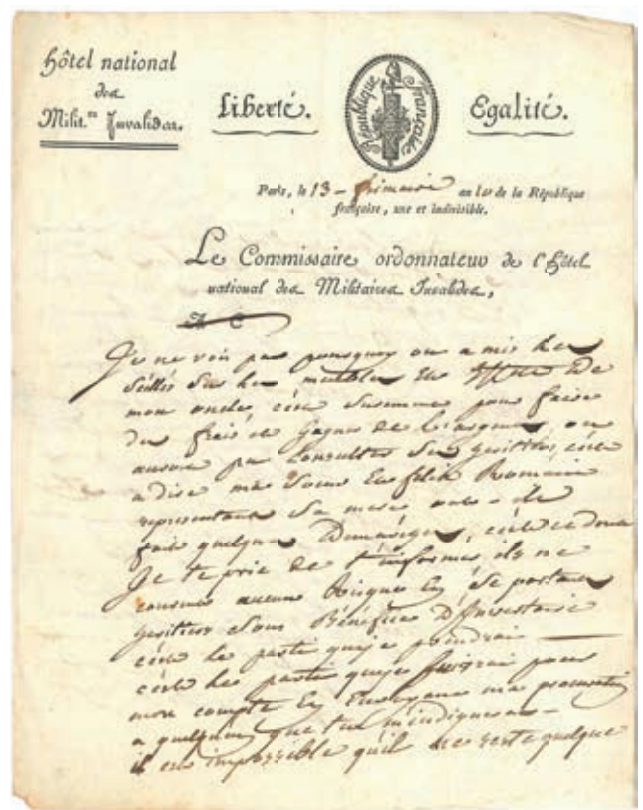 Hôtel national
des
Milit.res Invalides.
Liberté.
République française
Egalité.
Paris, le 13 frimaire an 10 de la République
française, une et indivisible.
Le Commissaire ordonnateur de l'Hôtel
national des Militaires Invalides,
A C
Je ne vois pas pourquoy on a mis les
Scéllés sur les meubles et de
mon oncle, c'est pour faire
des frais et gagner de l'argent, on
auroit pu Consulter Ses heritiers, c'est
a dire ma Soeur et felix Romain
representant Sa mere
fait quelques c'est ce dont
Je te prie de t'informer, ils ne
courent aucuns Risques En Se portant
heritiers Sous Bénéfice D'Inventaire
c'est le parti que je prendrai
c'est le parti que je Suivrai pour
mon compte En Envoyant ma procuration
a quelqu'un que tu m'indiqueras -
il est impossible qu'il ne reste quelque